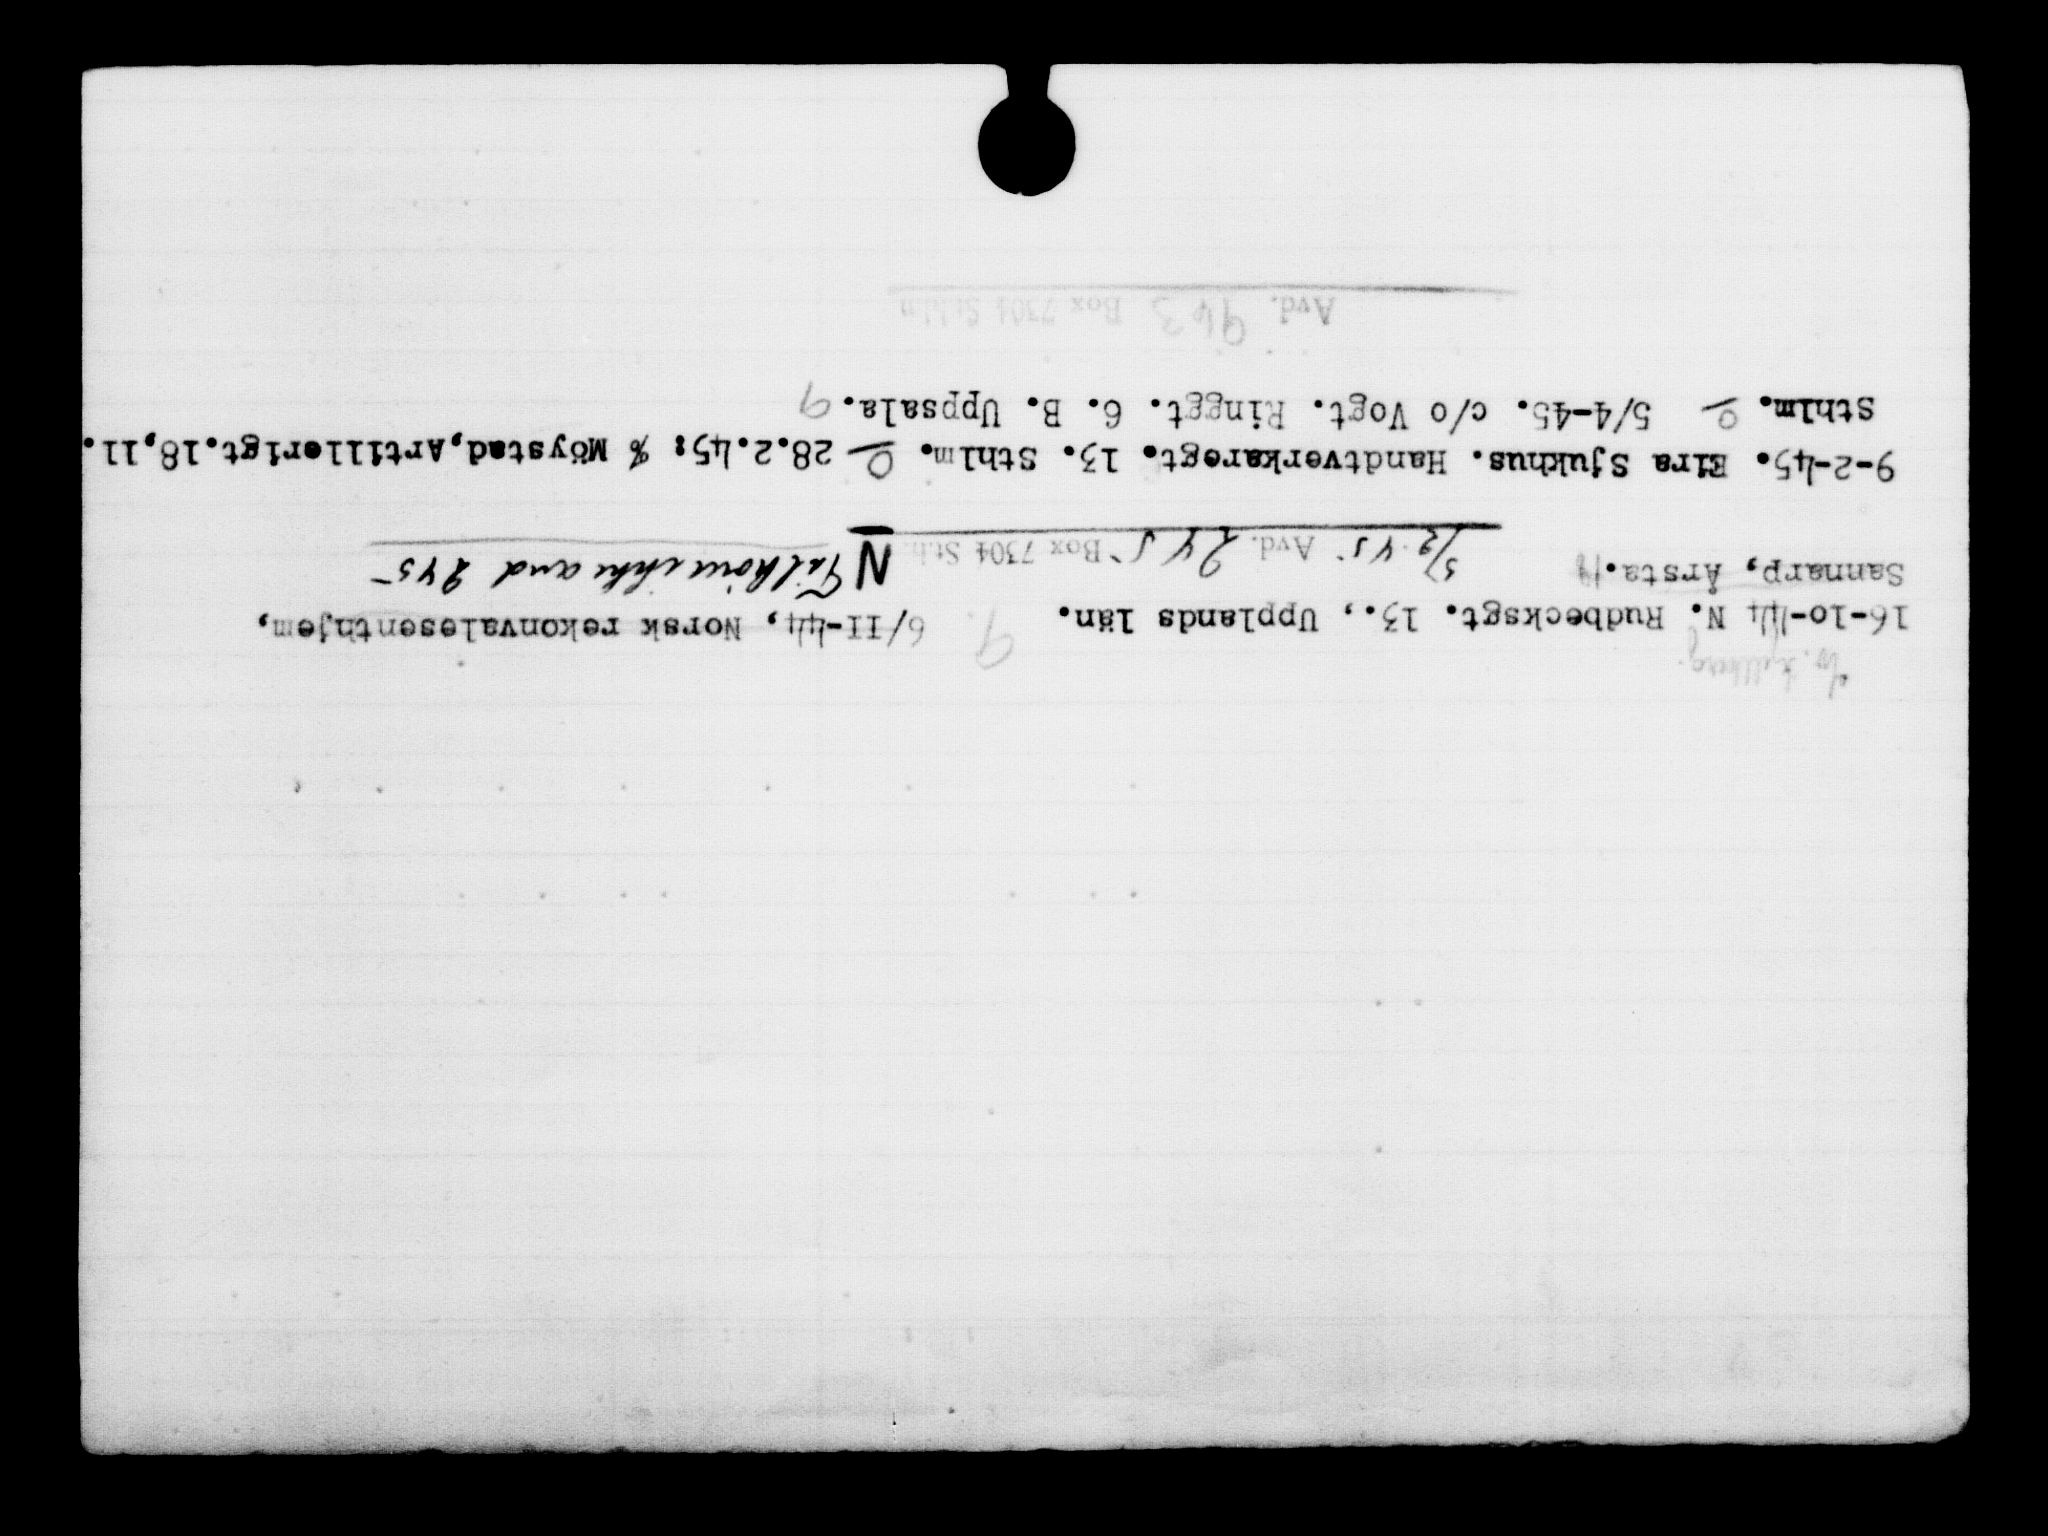 c/o Kjellberg.
16-10-44 N. Rudbecksgt. 13., Upplands län. 9. 6/II-44, Norsk rekonvalesenthjem,
Sannarp, Årsta.
5/2.45 Avd. 245 Box 7304 Sth. N avd 245
9-2-45. Eira Sjukhus. Handtverkaregt. 13. Sthlm. 28.2.45: % Möystad,Artillerigt.18,11.
Sthlm. 5/4-45. c/o Vogt. Ringgt. 6. B. Uppsala. 9
Avd. 963 Box 7304 Sthlm